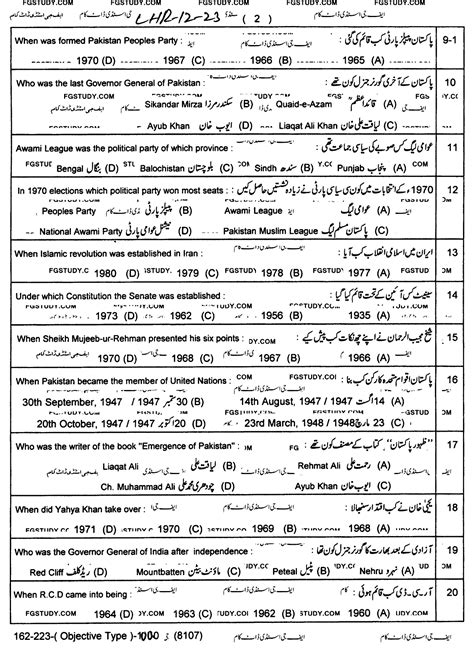 FGSTUDY.COM FGSTUDY.COM FGSTUDY.COM FGSTUDY.COM
ایف جی اسٹڈی ڈاٹ کام LHR-12-23 ( 2 ) ایف جی اسٹڈی ڈاٹ کام
When was formed Pakistan Peoples Party : پاکستان پیپلز پارٹی کب قائم کی گئی : 9-1
1970 (D) 1967 (C) 1966 (B) 1965 (A)
Who was the last Governor General of Pakistan : پاکستان کے آخری گورنر جنرل کون تھے : 10
Sikandar Mirza سکندر مرزا (B) Quaid-e-Azam قائداعظم (A)
Ayub Khan ایوب خان (D) Liaqat Ali Khan لیاقت علی خان (C)
Awami League was the political party of which province : عوامی لیگ کس صوبے کی سیاسی جماعت تھی : 11
Bengal بنگال (D) Balochistan بلوچستان (C) Sindh سندھ (B) Punjab پنجاب (A)
In 1970 elections which political party won most seats : 1970ء کے انتخابات میں کون سی سیاسی پارٹی نے زیادہ نشستیں حاصل کیں : 12
Peoples Party پیپلز پارٹی (B) Awami League عوامی لیگ (A)
National Awami Party نیشنل عوامی پارٹی (D) Pakistan Muslim League پاکستان مسلم لیگ (C)
When Islamic revolution was established in Iran : ایران میں اسلامی انقلاب کب آیا : 13
1980 (D) 1979 (C) 1978 (B) 1977 (A)
Under which Constitution the Senate was established : سینیٹ کس آئین کے تحت قائم کیا گیا : 14
1973 (D) 1962 (C) 1956 (B) 1935 (A)
When Sheikh Mujeeb-ur-Rehman presented his six points : شیخ مجیب الرحمان نے اپنے چھ نکات کب پیش کیے : 15
1970 (D) 1968 (C) 1967 (B) 1966 (A)
When Pakistan became the member of United Nations : پاکستان اقوام متحدہ کا رکن کب بنا : 16
30th September, 1947 / 30 ستمبر 1947 (B) 14th August, 1947 / 14 اگست 1947 (A)
20th October, 1947 / 20 اکتوبر 1947 (D) 23rd March, 1948 / 23 مارچ 1948 (C)
Who was the writer of the book "Emergence of Pakistan" : "ظہور پاکستان" کتاب کے مصنف کون تھے : 17
Liaqat Ali لیاقت علی (B) Rehmat Ali رحمت علی (A)
Ch. Muhammad Ali چودھری محمد علی (D) Ayub Khan ایوب خان (C)
When did Yahya Khan take over : یحییٰ خان نے کب اقتدار سنبھالا : 18
1971 (D) 1970 (C) 1969 (B) 1968 (A)
Who was the Governor General of India after independence : آزادی کے بعد بھارت کا گورنر جنرل کون تھا : 19
Red Cliff ریڈ کلف (D) Mountbatten ماؤنٹ بیٹن (C) Peteal پٹیل (B) Nehru نہرو (A)
When R.C.D came into being : آر۔سی۔ڈی کب قائم ہوئی : 20
1964 (D) 1963 (C) 1962 (B) 1960 (A)
FGSTUDY.COM FGSTUDY.COM FGSTUDY.COM
162-223-( Objective Type )-1000 (8107) ایف جی اسٹڈی ڈاٹ کام